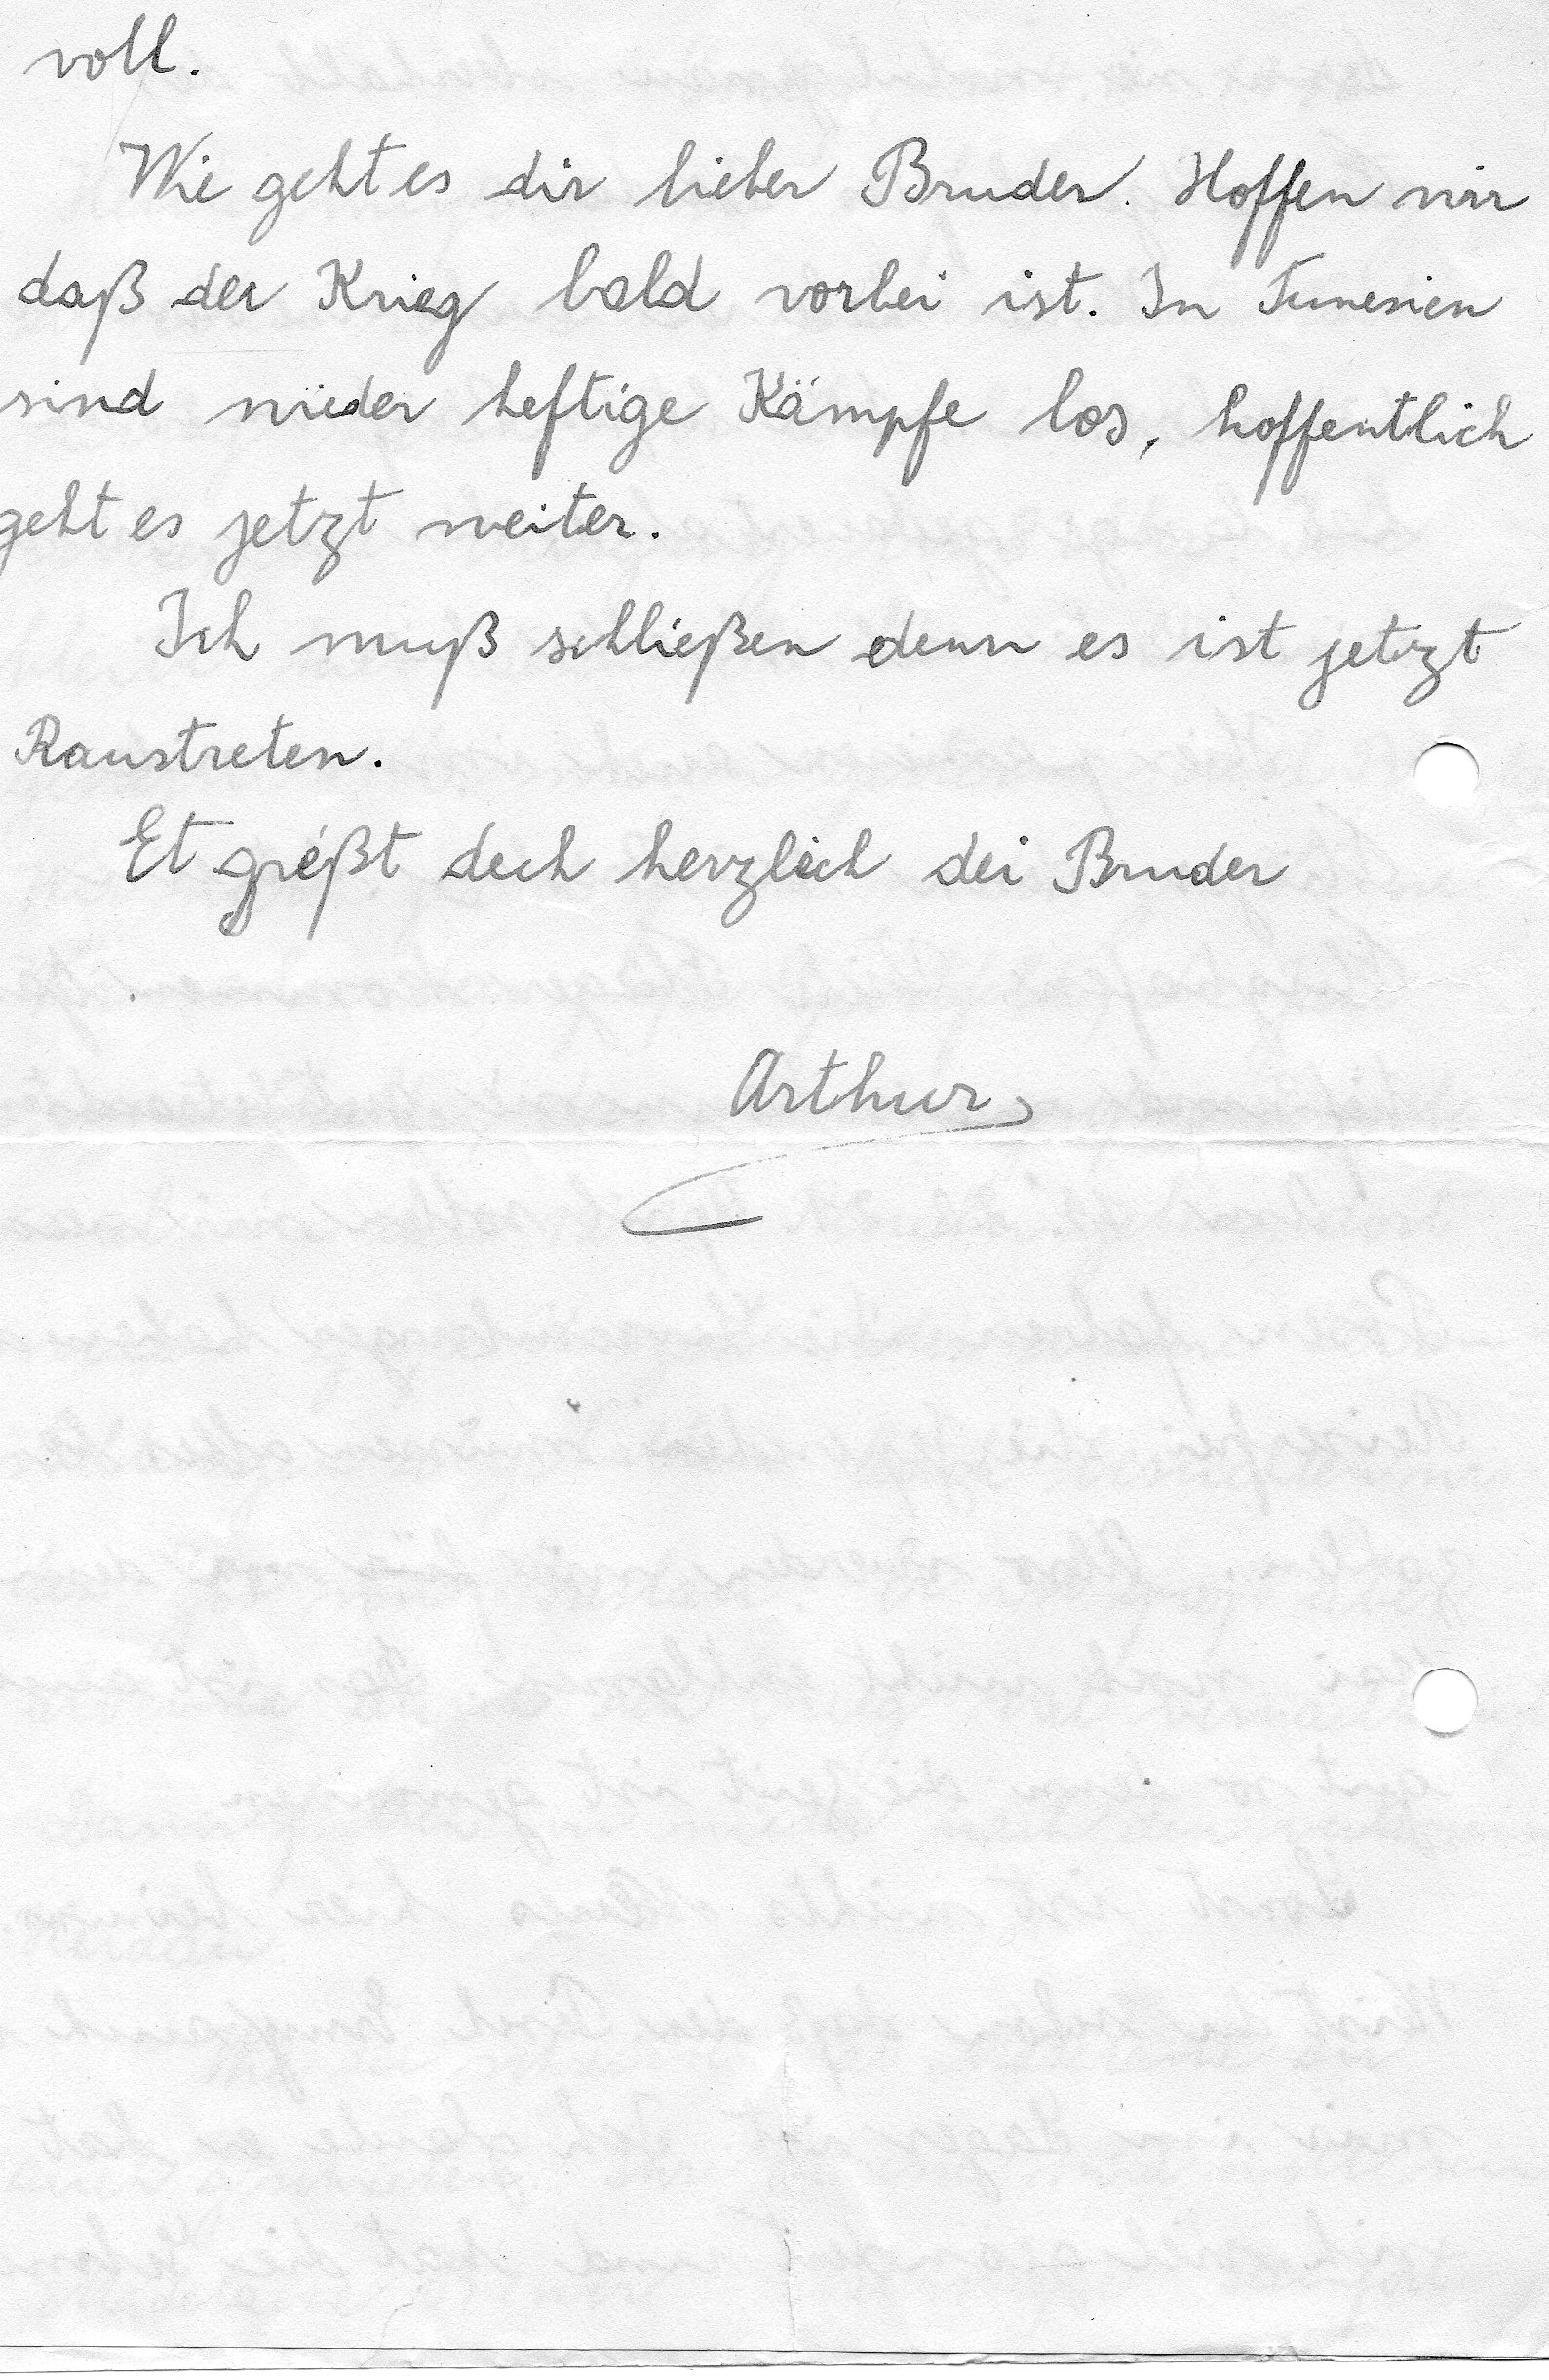 voll.
Wie geht es dir lieber Bruder. Hoffen wir
daß der Krieg bald vorbei ist. In Tunesien
sind wieder heftige Kämpfe los, hoffentlich
geht es jetzt weiter.
Ich muß schließen denn es ist jetzt
Raustreten.
Et gréßt dech herzlech dei Bruder
Arthur